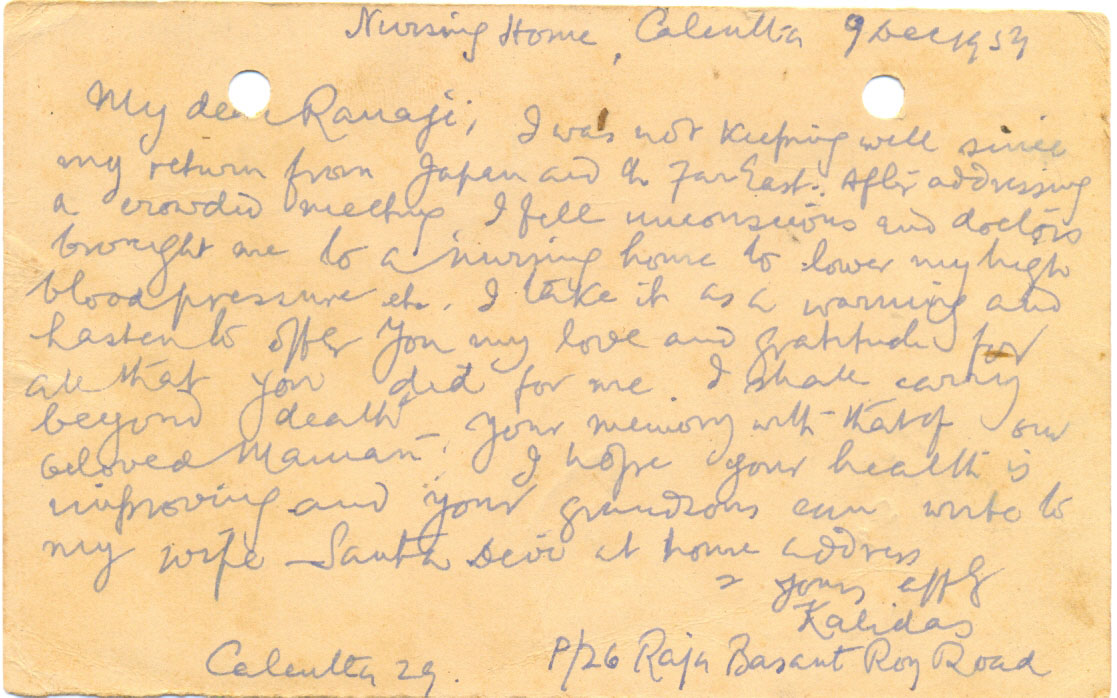 Nursing Home, Calcutta 9 Dec 1959
My dear Ranaji, I was not keeping well since
my return from Japan and the Far East. After addressing
a crowded meeting I fell unconscious and doctors
brought me to a nursing home to lower my high
blood pressure etc. I take it as a warning and
hasten to offer you my love and gratitude for
all that you did for me I shall carry
beyond death your memory with that of our
beloved Maman. I hope your health is
improving and your grandsons can write to
my wife Santa Devi at home address
yours affly
Kalidas
P/26 Raja Basant Roy Road
Calcutta 29.